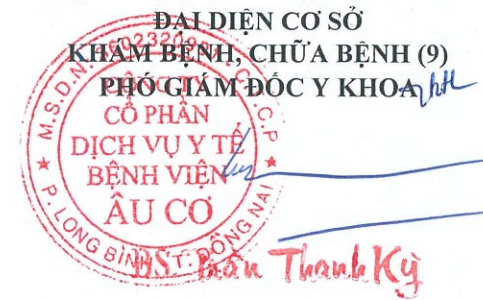 ĐẠI DIỆN CƠ SỞ
KHÁM BỆNH, CHỮA BỆNH (9)
PHÓ GIÁM ĐỐC Y KHOA
CÔNG TY
CỔ PHẦN
DỊCH VỤ Y TẾ
BỆNH VIỆN
ÂU CƠ
P. LONG BÌNH - T. ĐỒNG NAI
BS. Trần Thanh Kỳ